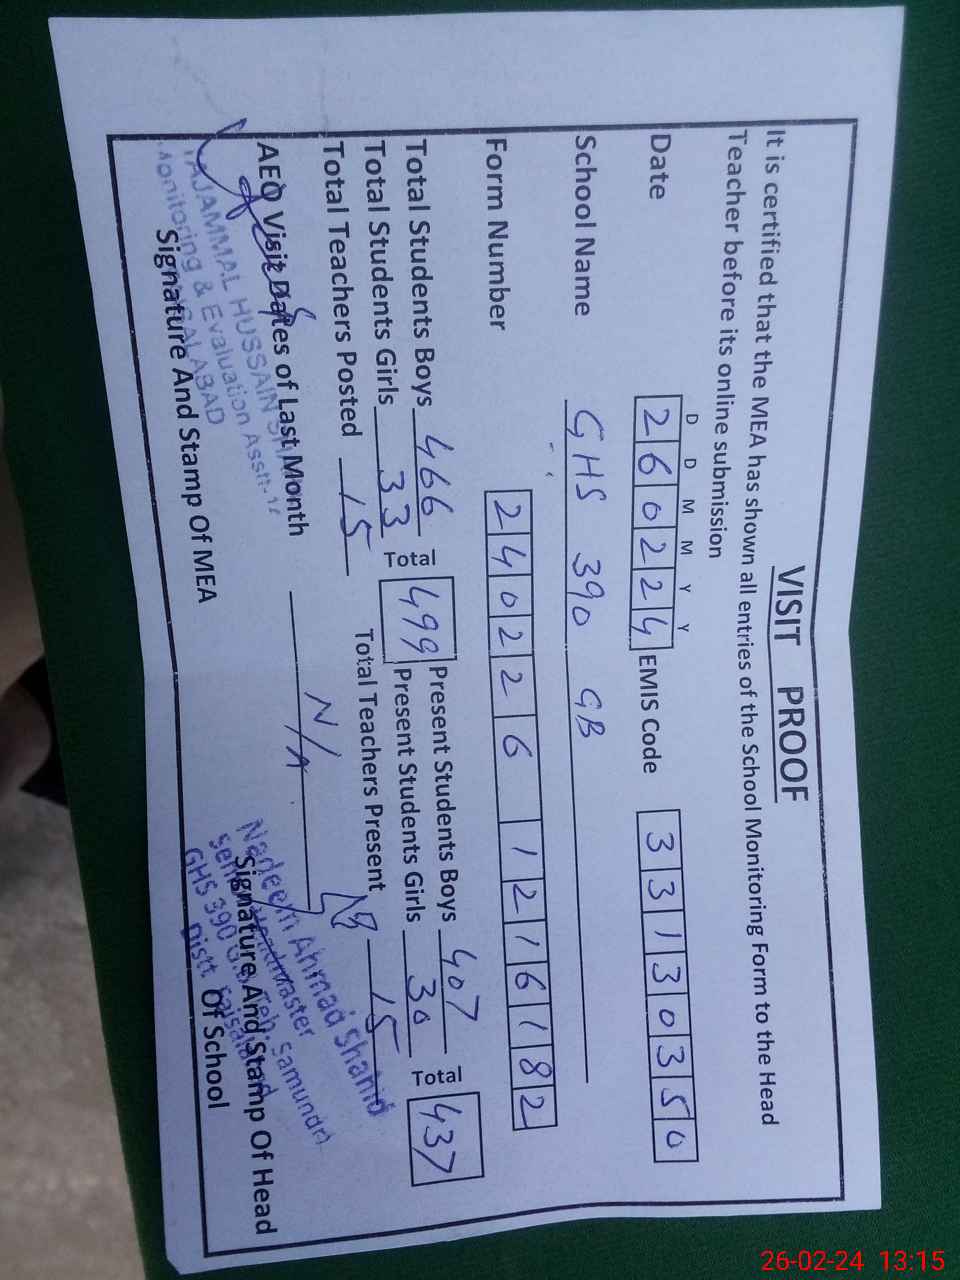 VISIT PROOF
It is certified that the MEA has shown all entries of the School Monitoring Form to the Head
Teacher before its online submission
D D M M Y Y
Date 260224 EMIS Code 33130350
School Name GHS 390 GB
Form Number 240226 1216182
Total Students Boys 466 Total 499 Present Students Boys 407 Total 437
Total Students Girls 33 Present Students Girls 30
Total Teachers Posted 15 Total Teachers Present 15
AEO Visit Dates of Last Month N/A
TAJAMMAL HUSSAIN
Monitoring & Evaluation Asstt-
FAISALABAD
Signature And Stamp Of MEA
Nadeem Ahmad Shahid
Senior Headmaster
GHS 390 G.B Teh. Samundri
Distt. Faisalabad
Signature And Stamp Of Head
Of School
26-02-24 13:15